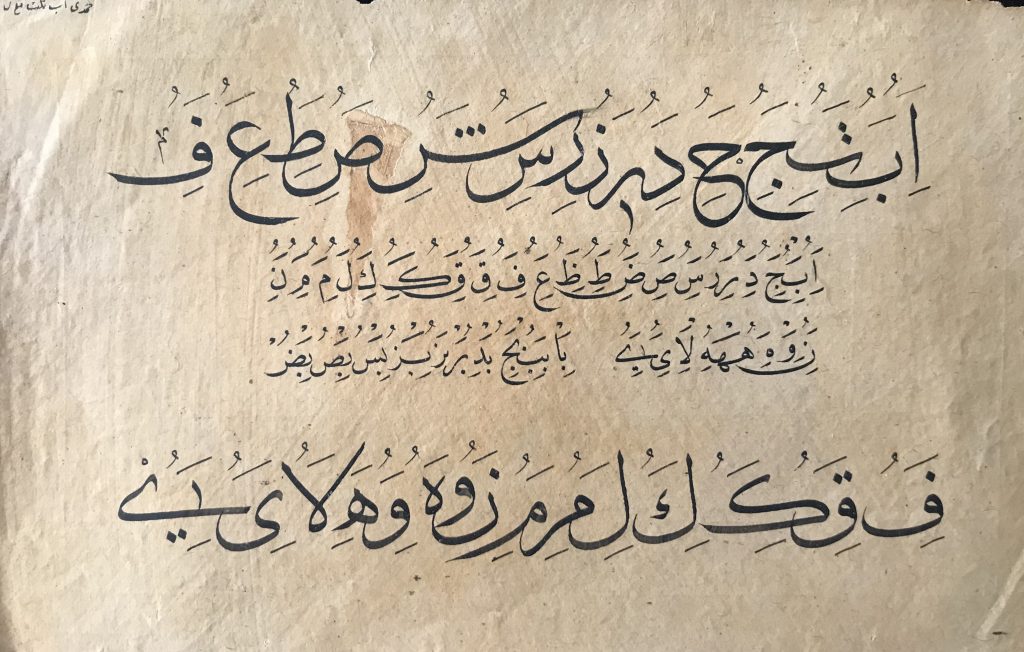 ا ب ث ج ح د ر ز ر س ش ص ط ع ف
ا ب ج د ر ر س ص ض ط ظ ع ف ق ق ك ك ل م م ن
ن و ه هه لا ى ے با بب بج بد بر بز بس بص بض
ف ق ك ك ل ل م م ن و ه و ه لا ى ے